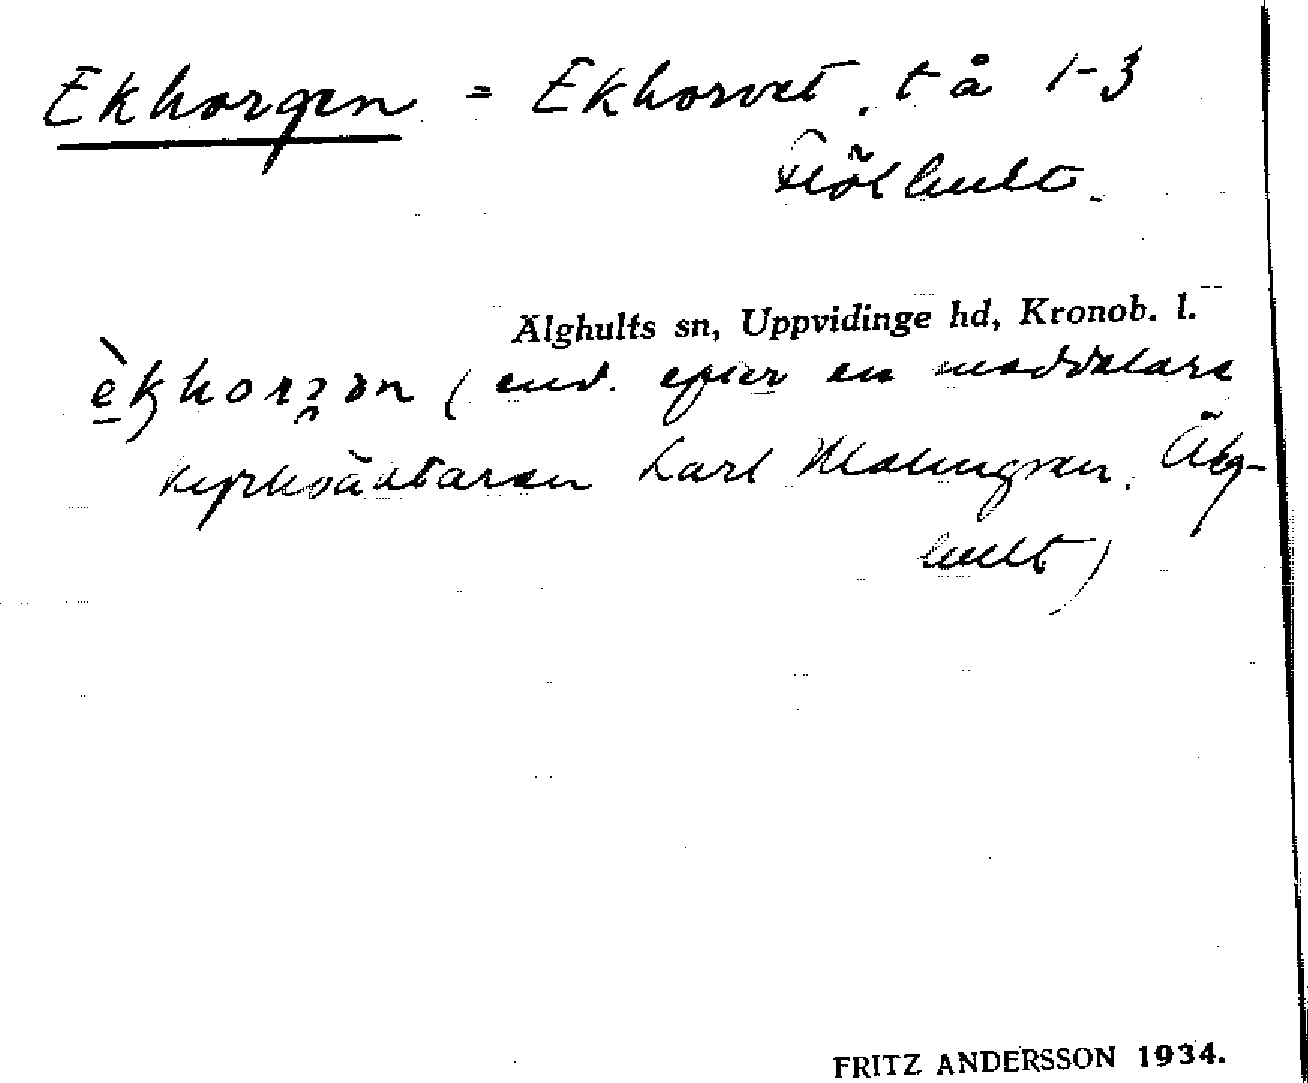 Ekhorgen = Ekhorvet, t å 1-3
Flöxhult.
Älghults sn, Uppvidinge hd, Kronob. l.
(end. efter en meddelare
kyrkväktaren Karl Malmgren, Älg-
hult)
FRITZ ANDERSSON 1934.